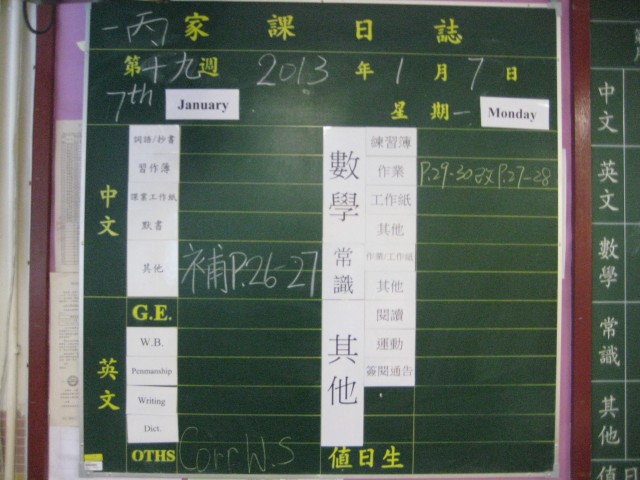 一丙 家課日誌
第十九週 2013年1月7日
7th January 星期一 Monday
中文
詞語/抄書
習作簿
課業工作紙
默書
其他 補P.26-27
英文
G.E.
W.B.
Penmanship
Writing
Dict.
OTHS Corr. W.S
數學
練習簿
作業 P.29-30改P.27-28
工作紙
其他
常識
作業/工作紙
其他
其他
閱讀
運動
簽閱通告
值日生
中文
英文
數學
常識
其他
值日